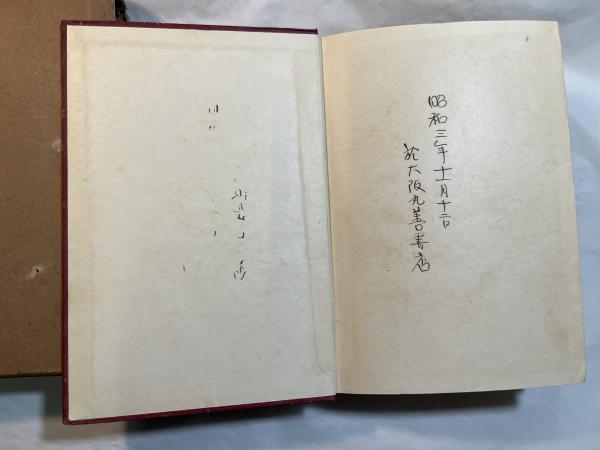 昭和三年十一月十二日
於大阪丸善書店